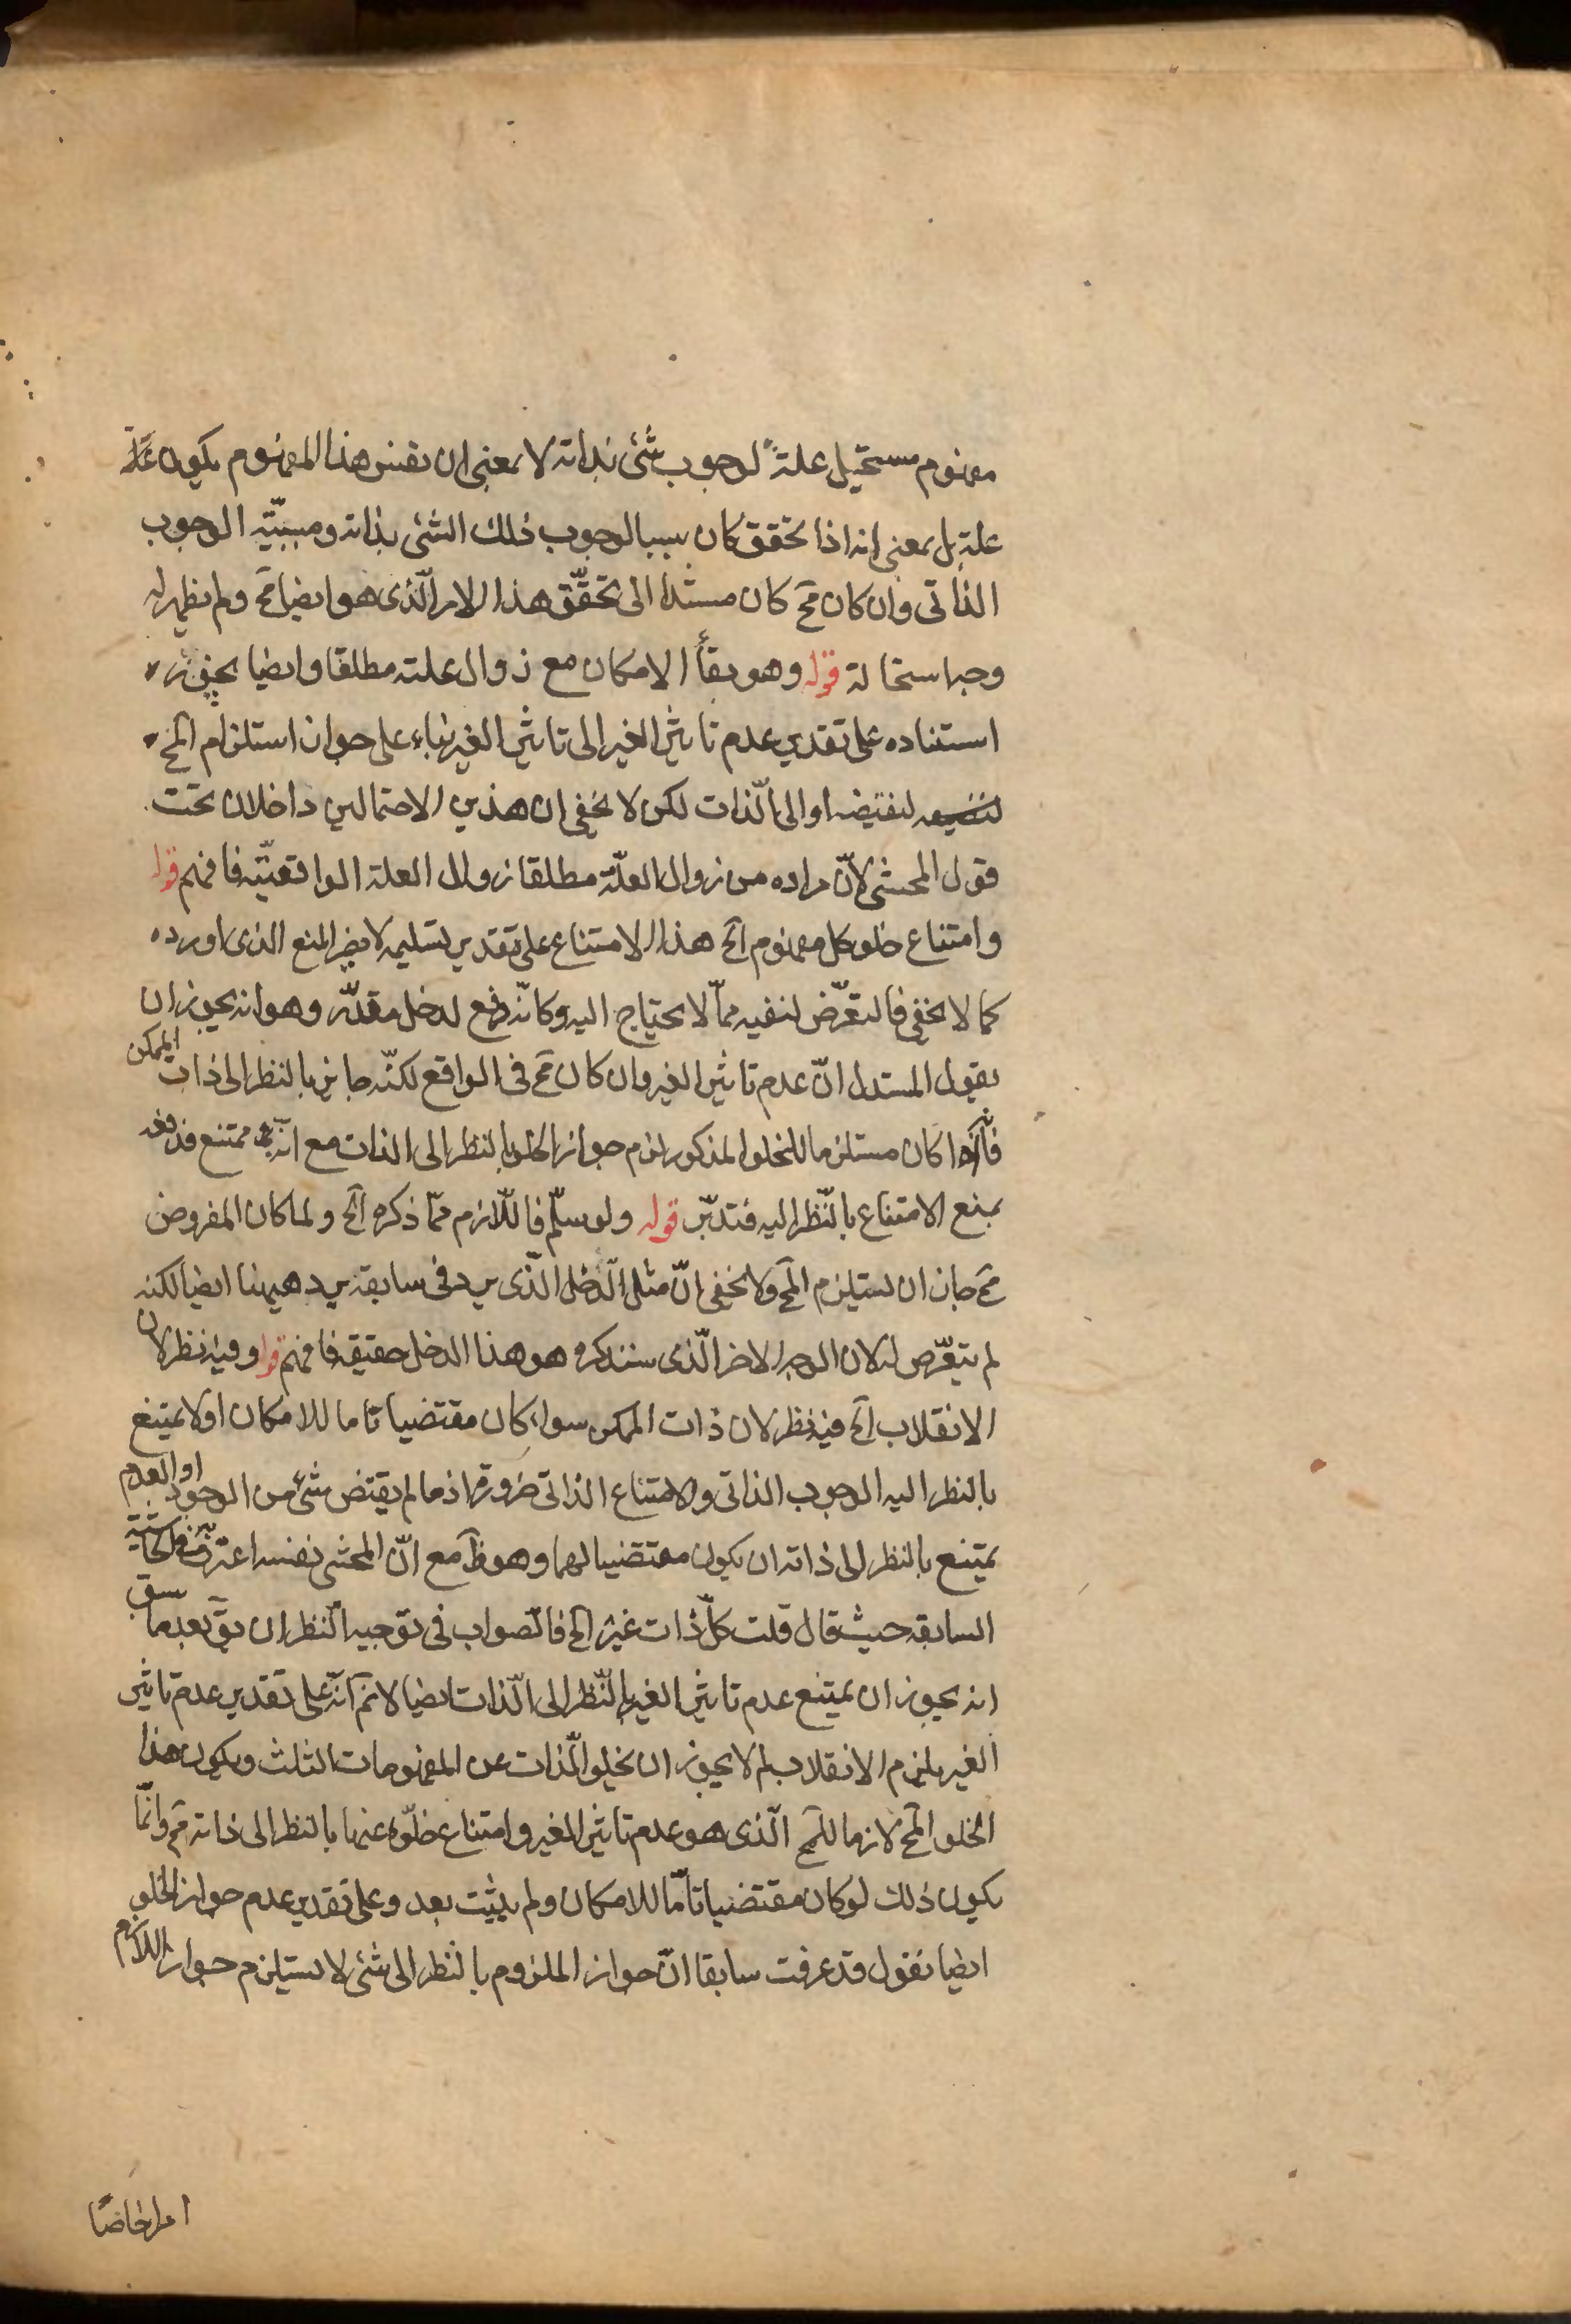 مفهوم مستحيل علة لوجوب شئ بذاته لا بمعنى ان نفس هذا المفهوم يكون علة
علة بل بمعنى انه اذا تحقق كان سببا لوجوب ذلك الشئ بذاته ومسببيّة الوجوب
الذاتى وان كان مح كان مستندا الى تحقّق هذا الامر الّذى هو ايضا مح ولم يظهر له
وجه استحالة قوله وهو بقاء الامكان مع زوال علته مطلقا وايضا يجوز
استناده على تقدير عدم تاثير الغير الى تاثير الغير بناء على جواز استلزام المح
لنقيضه او الى الذّات لكن لا يخفى ان هذين الاحتمالين داخلان تحت
قول المحشى لانّ مراده من زوال العلّة مطلقا زوال العلة الواقعيّة فافهم قوله
وامتناع خلو كل مفهوم الخ هذا الامتناع على تقدير تسليمه لا يضر المنع الذى اورده
كما لا يخفى فالتعرّض لنفيه ممّا لا يحتاج اليه وكانّه دفع لدخل مقدّر وهو انه يجوز ان
يقول المستدل انّ عدم تاثير الغير وان كان مح فى الواقع لكنّه جايز بالنظر الى ذات الممكن
فاذا كان مستلزما للخلو المذكور لزم جواز الخلو بالنظر الى الذات مع انه ممتنع فدفعه
بمنع الامتناع بالنّظر اليه فتدبّر قوله ولو سلّم فاللّازم ممّا ذكره الخ ولما كان المفروض
مح جاز ان يستلزم المح ولا يخفى انّ مثل الّدخل الّذى يرد فى سابقه يرد هيهنا ايضا لكنه
لم يتعرّض له لان الوجه الاخر الّذى سنذكره هو هذا الدخل حقيقة فافهم قوله وفيه نظر لان
الانقلاب الخ فيه نظر لان ذات الممكن سواء كان مقتضيا تاما للامكان او لا يمتنع
بالنظر اليه الوجوب الذاتى والامتناع الذاتى ضرورة اذ ما لم يقتض شئ من الوجود او العدم
يمتنع بالنظر الى ذاته ان يكون مقتضيا لهما وهو ظ مع انّ المحشى نفسه اعترف به فى الحاشية
السابقة حيث قال قلت كلّ ذات غير الخ فالّصواب فى توجيه الّنظر ان يق بعد ما سبق
انه يجوز ان يمتنع عدم تاثير الغير بالنّظر الى الّذات ايضا لانم انّه على تقدير عدم تاثير
الغير يلزم الانقلاب لم لا يجوز ان يخلو الّذات عن المفهومات الثلث ويكون هذا
الخلو المح لازما للمح الّذى هو عدم تاثير الغير وامتناع خلّوه عنها بالنظر الى ذاته مح وانّما
يكون ذلك لو كان مقتضيا تامّا للامكان ولم يثبت بعد وعلى تقدير عدم جواز الخلو
ايضا نقول قد عرفت سابقا انّ جواز الملزوم بالنّظر الى شئ لا يستلزم جواز اللازم
امرا خاصّا